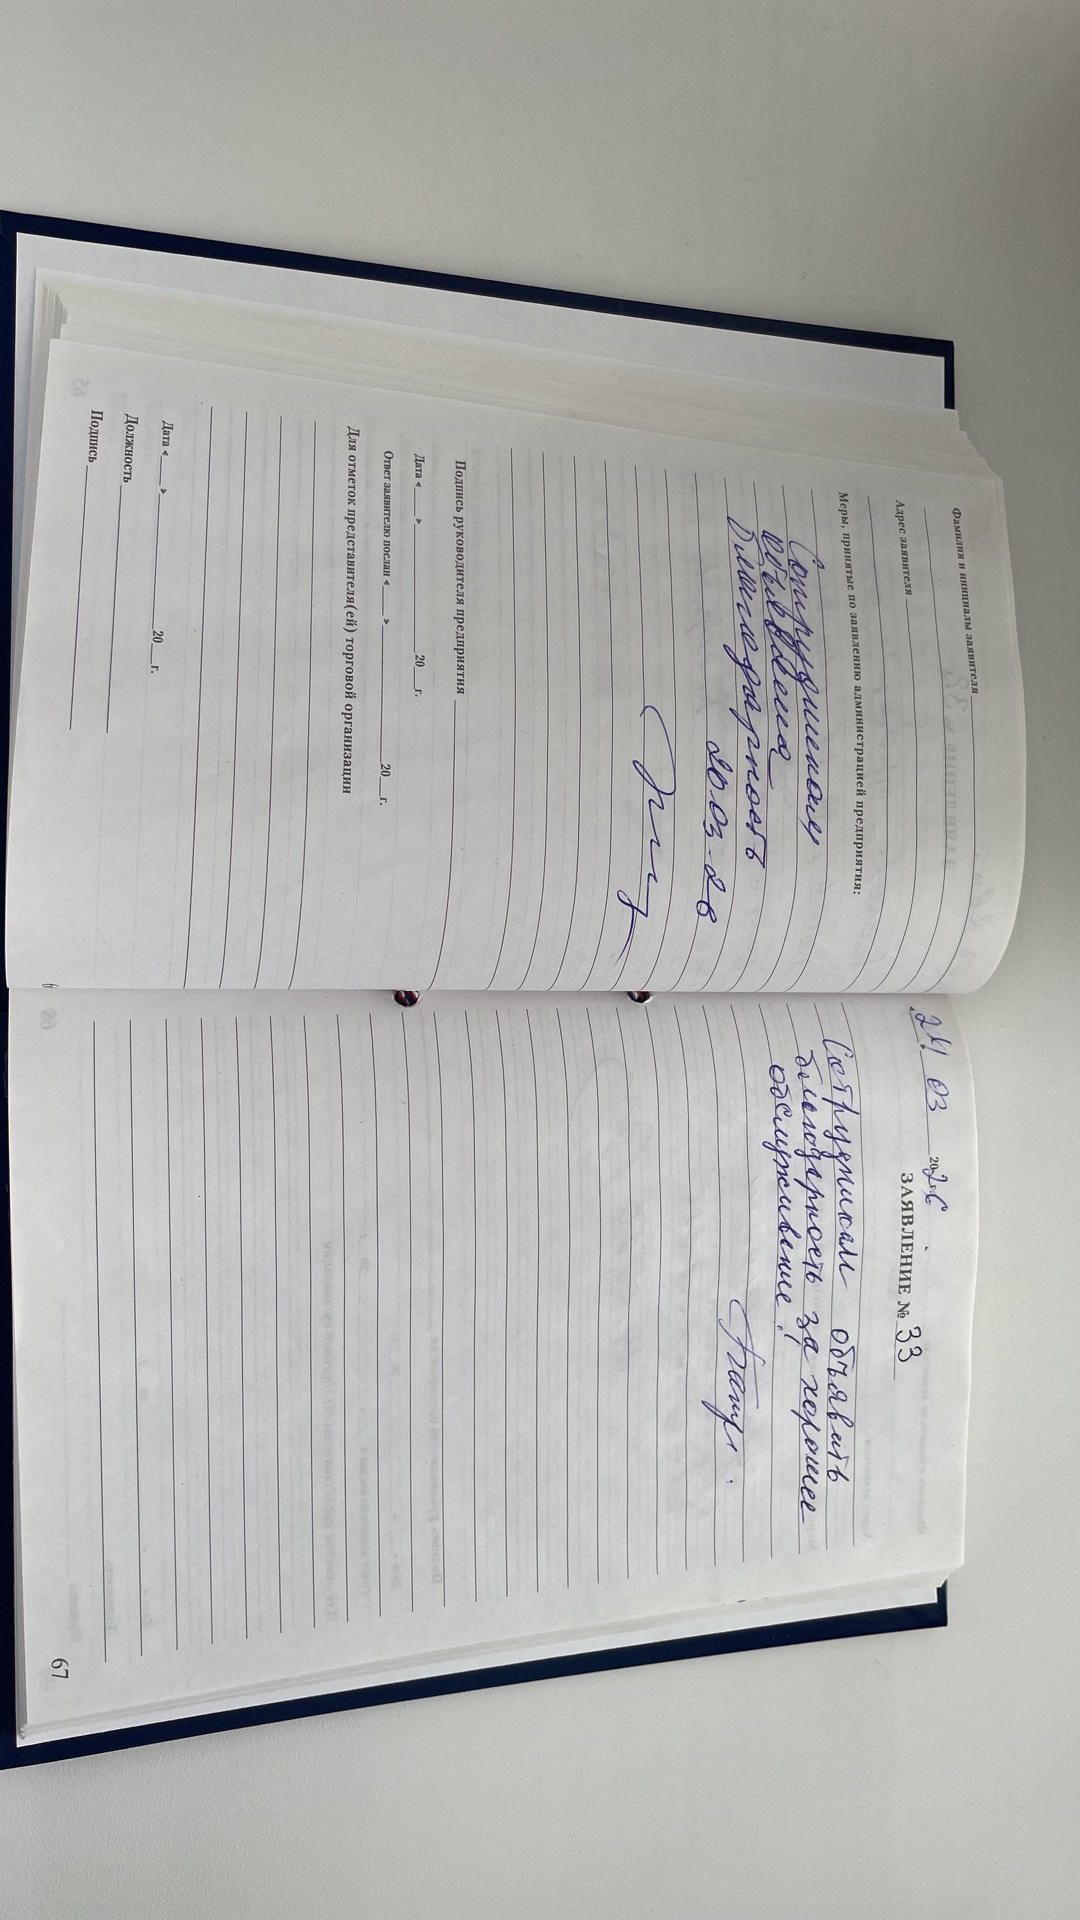 Фамилия и инициалы заявителя
Адрес заявителя
Меры, принятые по заявлению администрацией предприятия:
Сотрудникам
объявлена
благодарность
20.03-26
Подпись руководителя предприятия
Дата « » 20 г.
Ответ заявителю послан « » 20 г.
Для отметок представителя(ей) торговой организации
Дата « » 20 г.
Должность
Подпись
24 03 2026
ЗАЯВЛЕНИЕ № 33
Сотрудникам объявить
благодарность за хорошее
обслуживание!
67